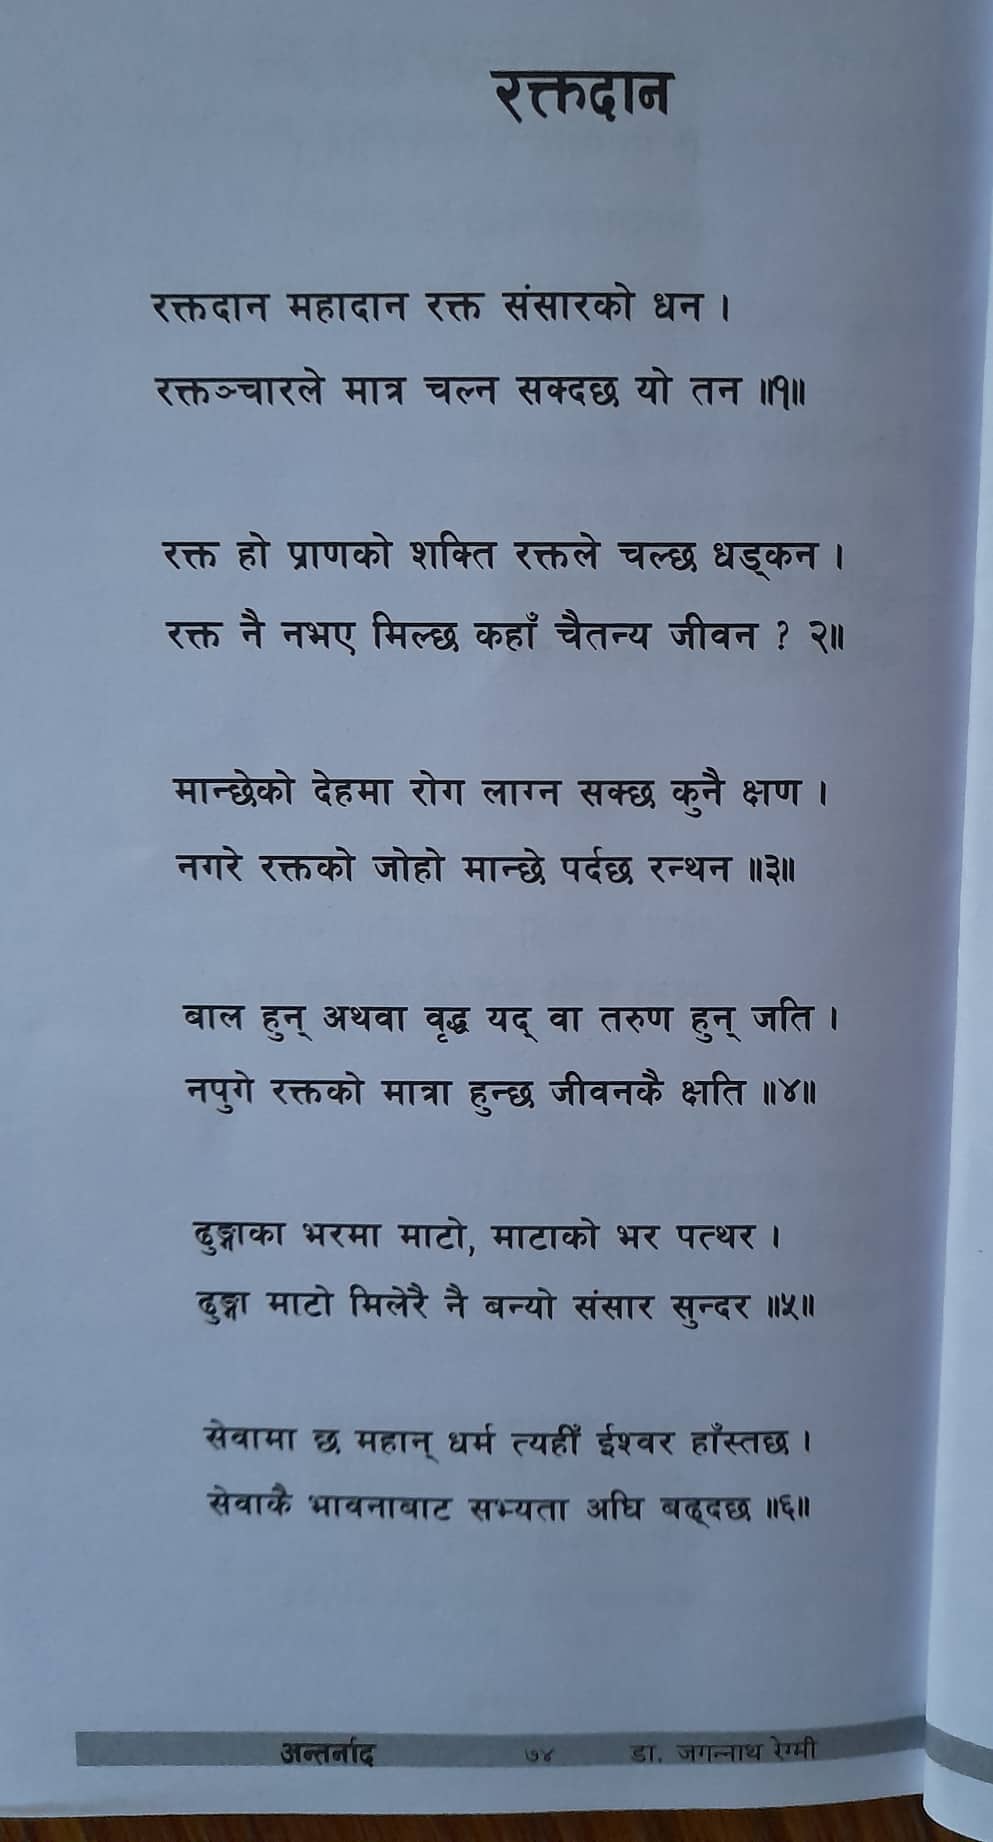 रक्तदान
रक्तदान महादान रक्त संसारको धन ।
रक्तञ्चारले मात्र चल्न सक्दछ यो तन ॥१॥
रक्त हो प्राणको शक्ति रक्तले चल्छ धड्कन ।
रक्त नै नभए मिल्छ कहाँ चैतन्य जीवन ? २॥
मान्छेको देहमा रोग लाग्न सक्छ कुनै क्षण ।
नगरे रक्तको जोहो मान्छे पर्दछ रन्थन ॥३॥
बाल हुन् अथवा वृद्ध यद् वा तरुण हुन् जति ।
नपुगे रक्तको मात्रा हुन्छ जीवनकै क्षति ॥४॥
ढुङ्गाका भरमा माटो, माटाको भर पत्थर ।
ढुङ्गा माटो मिलेरै नै बन्यो संसार सुन्दर ॥५॥
सेवामा छ महान् धर्म त्यहीँ ईश्वर हाँस्तछ ।
सेवाकै भावनाबाट सभ्यता अघि बढ्दछ ॥६॥
अन्तर्नाद ७४ डा. जगन्नाथ रेग्मी